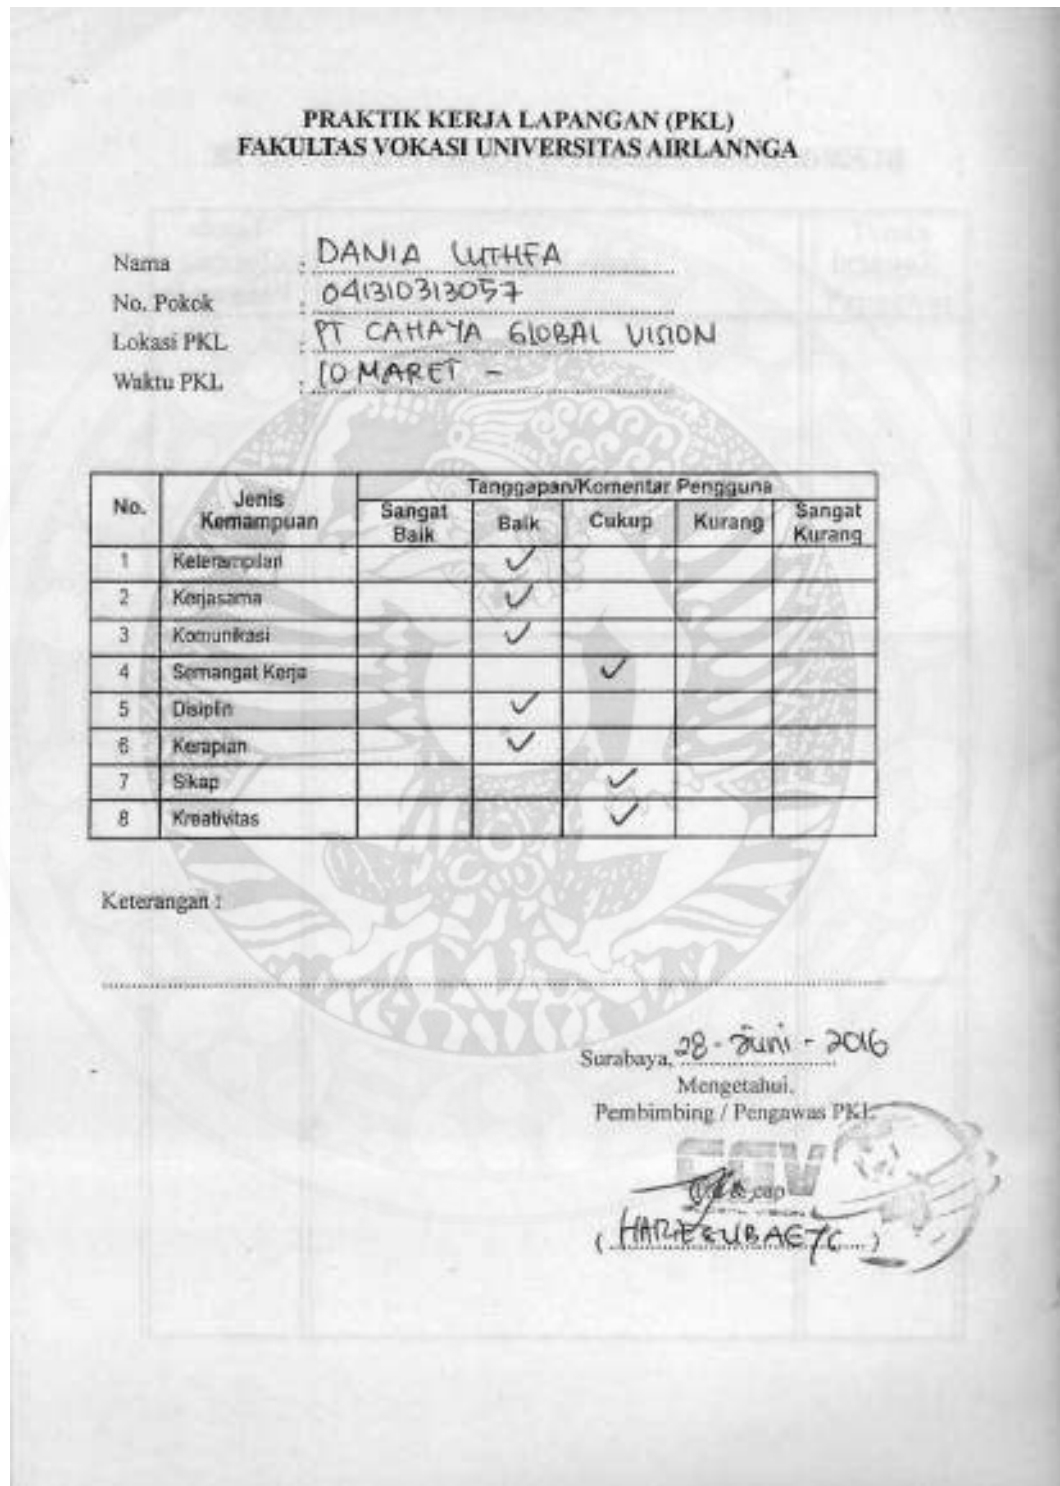 PRAKTIK KERJA LAPANGAN (PKL)
FAKULTAS VOKASI UNIVERSITAS AIRLANNGA
Nama : DANIA LUTHFA
No. Pokok : 041310313057
Lokasi PKL : PT CAHAYA GLOBAL VISION
Waktu PKL : 10 MARET -
No. Jenis Kemampuan Tanggapan/Komentar Pengguna
Sangat Baik Baik Cukup Kurang Sangat Kurang
1 Keterampilan ✓
2 Kerjasama ✓
3 Komunikasi ✓
4 Semangat Kerja ✓
5 Disiplin ✓
6 Kerapian ✓
7 Sikap ✓
8 Kreativitas ✓
Keterangan :
Surabaya, 28 - Juni - 2016
Mengetahui,
Pembimbing / Pengawas PKL
CGV
cap